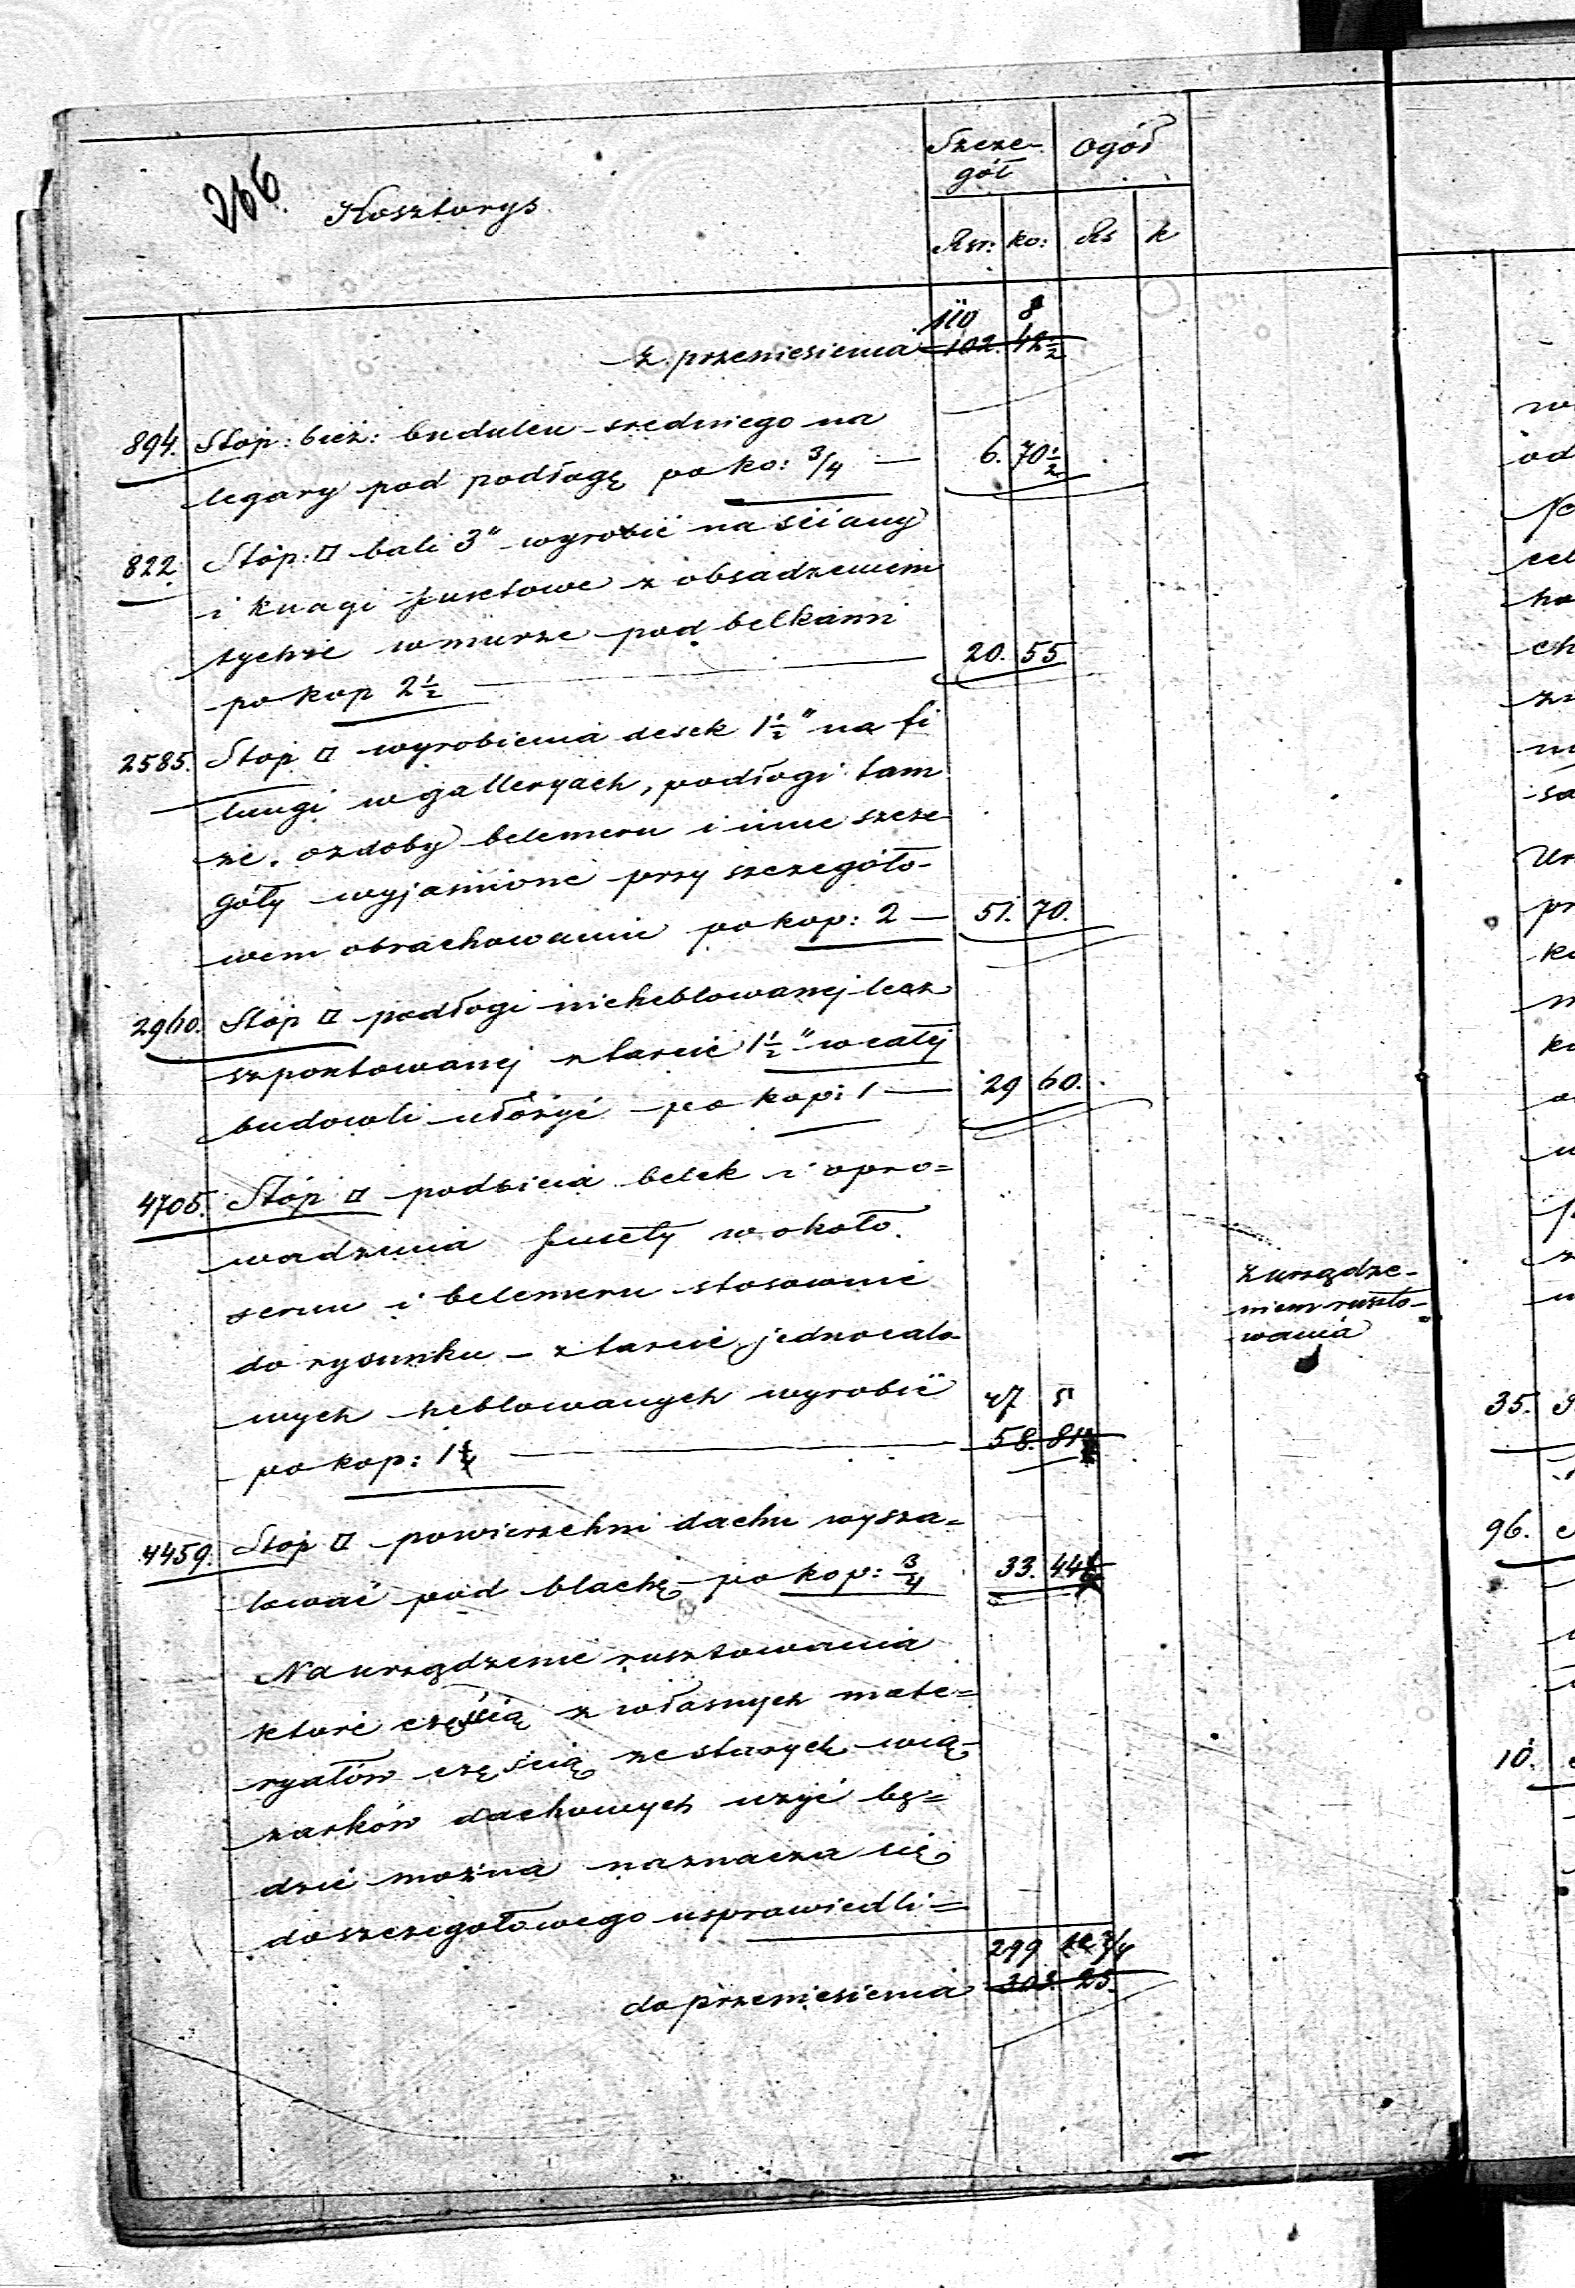 266.
Kosztorys
Szcze-
gół
Ogół
Rsr: ko: Rs k
110 8
z przeniesienia 102. 42½
894. Stóp: bież: budulcu średniego na
legary pod podłogę po ko: 3/4 — 6. 70½
822. Stóp: □ bali 3" wyrobić na ściany
i knagi fusetowe z obsadzeniem
tychże w murze pod belkami
po kop 2½ — 20. 55
2585. Stóp □ wyrobienia desek 1½" na fi
lungi w galleryach, podłogi tam
że, ozdoby belemeru i inne szcze
góły wyjaśnione przy szczegóło-
wem obrachowaniu po kop: 2 — 51. 70.
2960. Stóp □ podłogi nieheblowanej lecz
szpontowanej z tarcic 1½" w całej
budowli ułożyć po kop: 1 — 29 60.
4705. Stóp □ podbicia belek i opro=
wadzenia fusety w około
serun i belemeru stosownie
do rysunku – z tarcic jednocalo-
wych heblowanych wyrobić 47 5
po kop: 1¼ — 58. 81¼
z urządze-
niem ruszto-
wania
4459. Stóp □ powierzchni dachu wysza=
lować pod blachę po kop: 3/4 33. 44¼
Na urządzenie rusztowania
które częścią z własnych mate=
ryałów częścią ze starych wią-
zarków dachowych użyć bę=
dzie można naznacza się
do szczegołowego usprawiedli=
299 12¾
do przeniesienia 303. 25.
35.
96.
10.